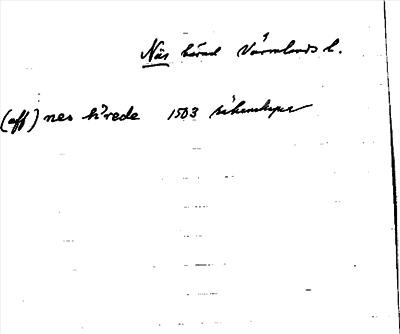 Näs härad Värmlands l.
(aff) nes hrede 1503 räkenskaper